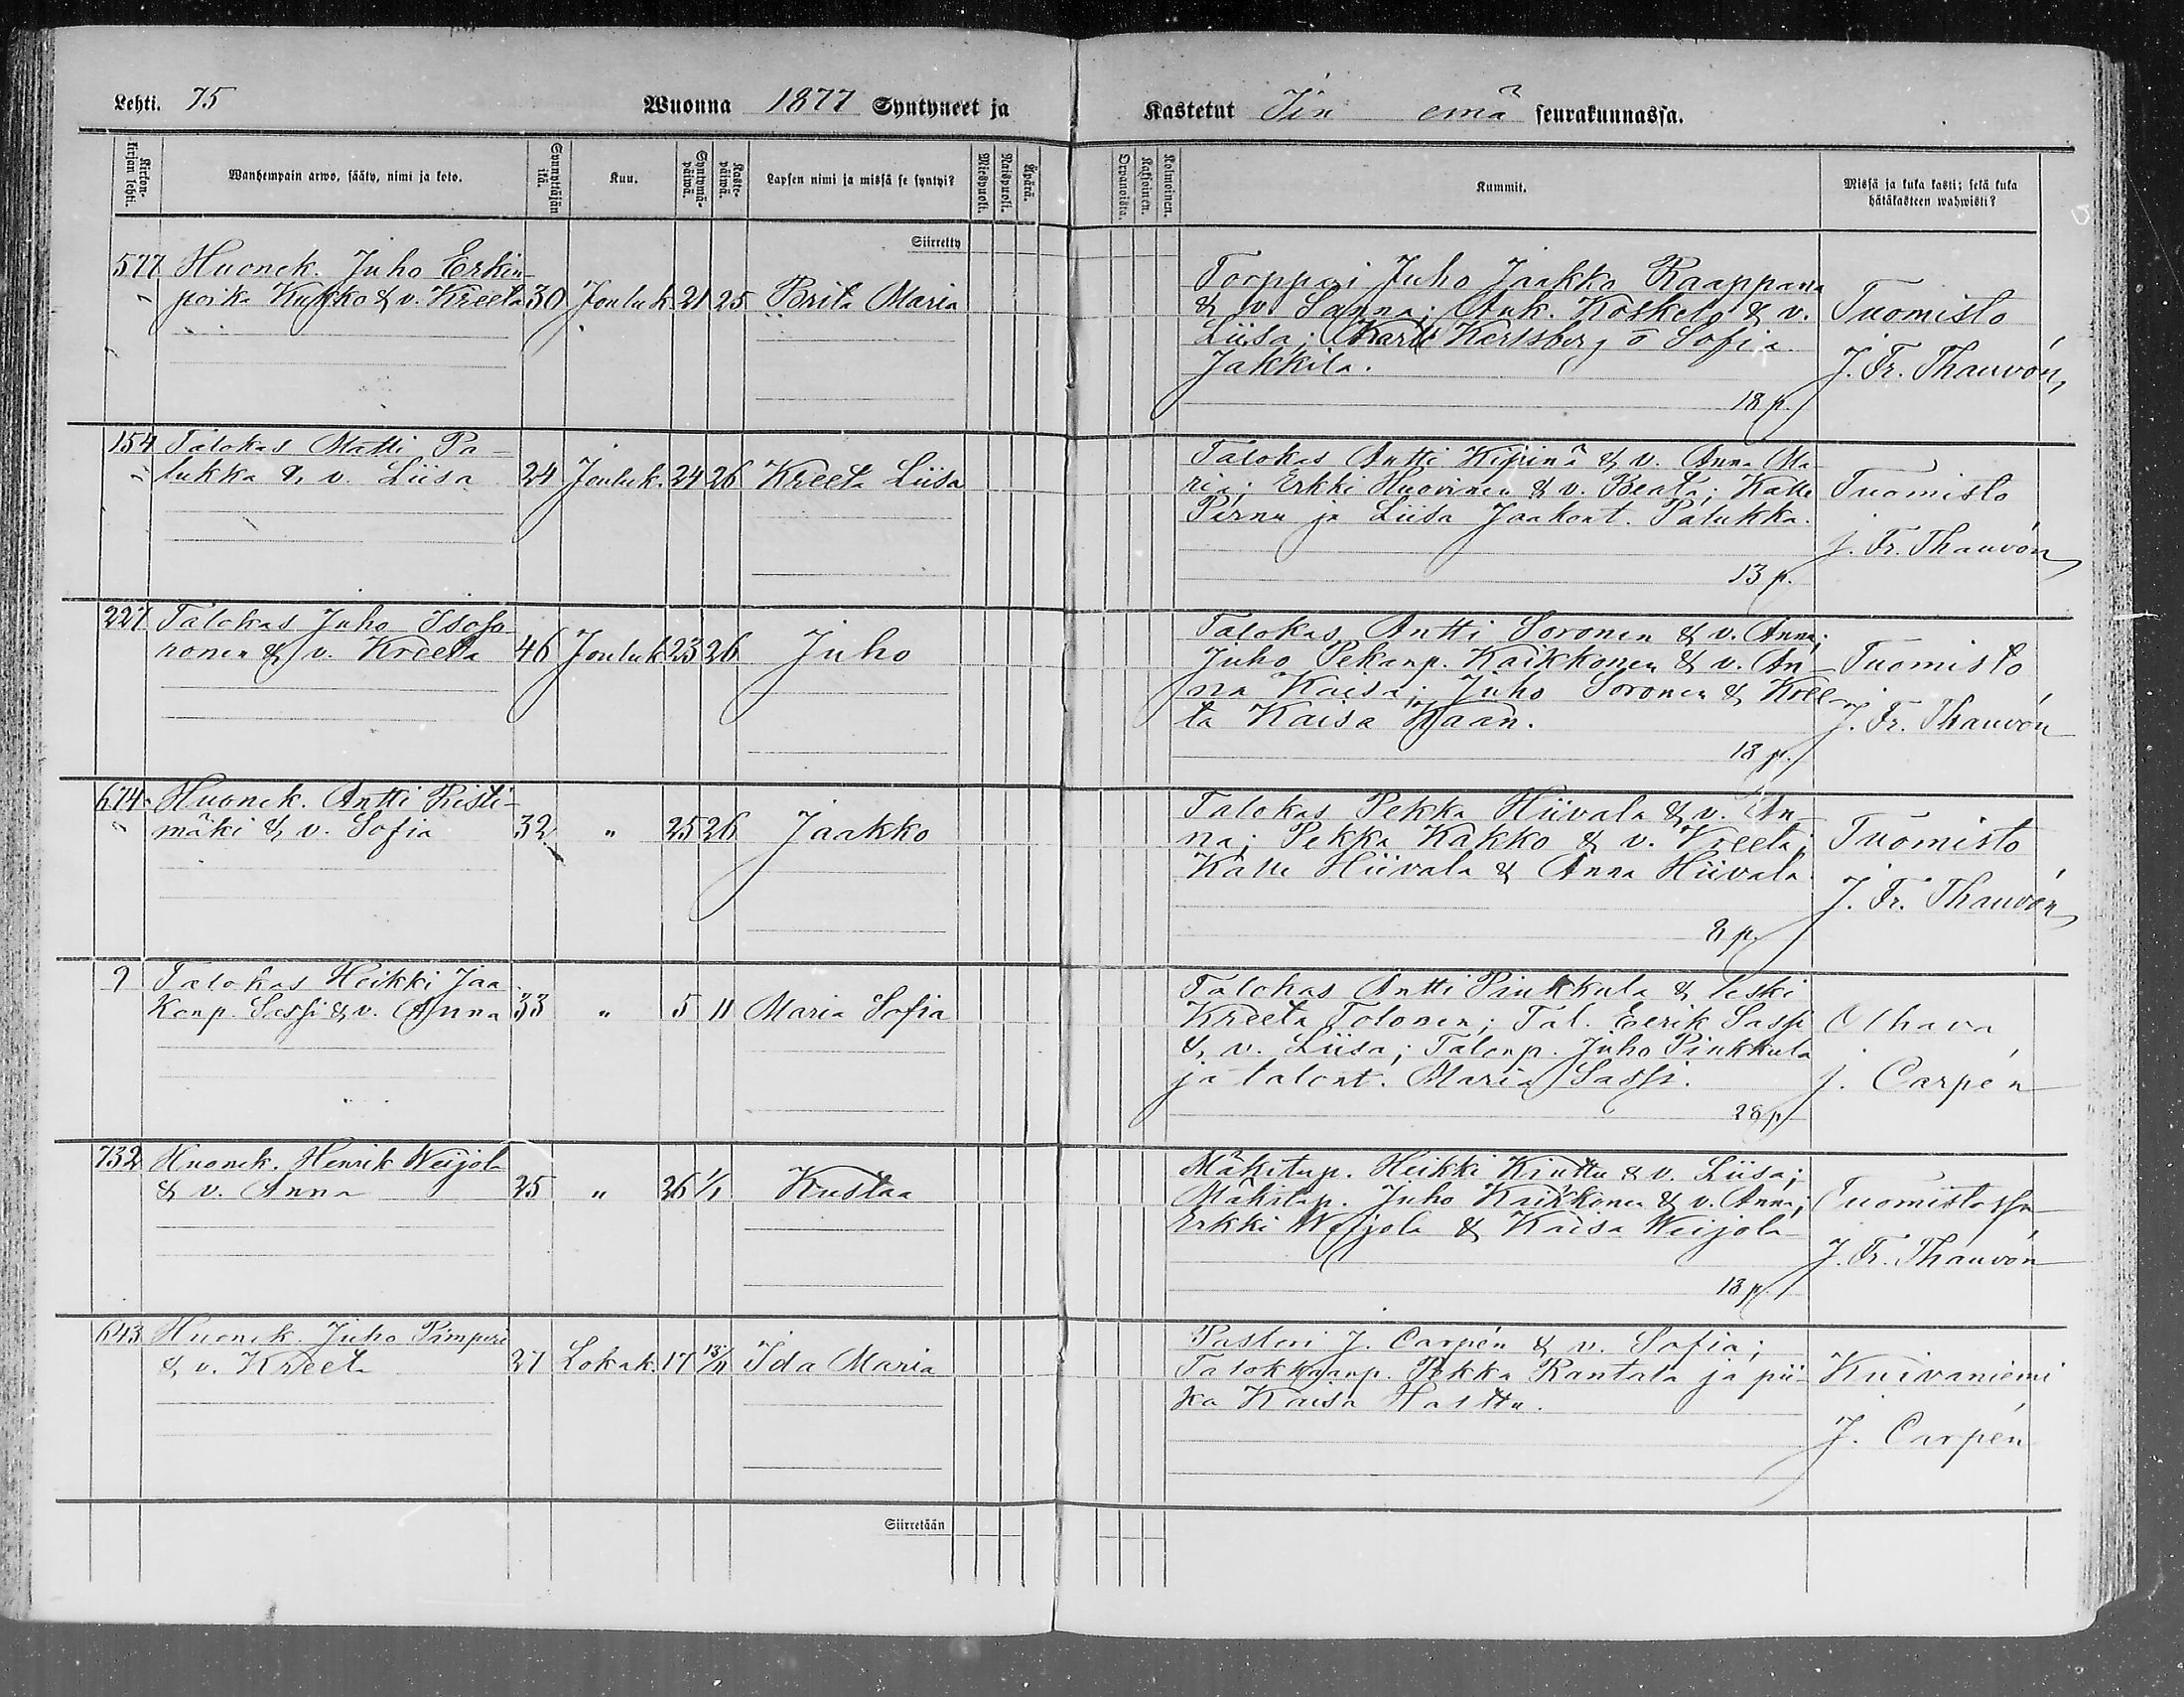 Lehti. 75
Wuonna 1877 Syntyneet ja
Kastetut Iin emä seurakunnassa.
Kirkon-kirjan lehti.
Wanhempain arwo, sääty, nimi ja koto.
Synnyttäjän ikä.
Kuu.
Syntymä-päiwä.
Kaste-päiwä.
Lapsen nimi ja missä se syntyi?
Miespuoli.
Naispuoli.
Äpärä.
Orpanoista.
Kaksoinen.
Kolmoinen.
Kummit.
Missä ja kuka kasti; sekä kuka
hätäkasteen wahwisti?
Siirretty
577 Huonek. Juho Erkin-
poika Kukko & v. Kreeta 30 Jouluk. 21 25 Brita Maria
Torppari Juho Jaakko Raappana
& v. Sanna; Ank. Koskelo & v.
Liisa; Karlsberg o Sofia
Jakkila.
18 p.
Tuomisto
J. Fr. Thauvón
154 Talokas Matti Pa-
lukka & v. Liisa 24 Jouluk. 24 26 Kreeta Liisa
Talokas Antti Kipinä & v. Anna Ma-
ria; Erkki Huovinen & v. Beata; Kalle
Pernu ja Liisa Jaakont. Palukka.
13 p.
Tuomisto
J. Fr. Thauvón
227 Talokas Juho Isoso-
ronen & v. Kreeta 46 Jouluk 23 26 Juho
Talokas Antti Soronen & v. Anna;
Juho Pekanp. Kaikkonen & v. An-
na Kaisa; Juho Soronen & Kree-
ta Kaisa Haan.
18 p.
Tuomisto
J. Fr. Thauvón
674. Huonek. Antti Risti-
mäki & v. Sofia 32 " 25 26 Jaakko
Talokas Pekka Hiivala & v. An-
na; Pekka Kakko & v. Kreeta;
Kalle Hiivala & Anna Hiivala
8 p.
Tuomisto
J. Fr. Thauvón
9 Talokas Heikki Jaa-
konp. Sassi & v. Anna 33 " 5 11 Maria Sofia
Talokas Antti Pinkkula & leski
Kreeta Tolonen; Tal. Eerik Sassi
& v. Liisa; Talonp. Juho Pinkkula
ja talont. Maria Sassi.
28 p
Olhava
J. Carpén
732 Huonek. Henrik Weijola
& v. Anna 25 " 26 1/1 Kustaa
Mäkitup. Heikki Kinttu & v. Liisa;
Mäkitup. Juho Kaikkonen & v. Anna;
Erkki Weijola & Kaisa Weijola
13 p.
Tuomistossa
J. Fr. Thauvón
643 Huonek. Juho Pimperi
& v. Kreeta 27 Lokak. 17 18/11 Ida Maria
Pastori J. Carpén & v. Sofia;
Talokkaanp. Pekka Rantala ja pii-
ka Kaisa Hasttu.
Kuivaniemi
J. Carpén
Siirretään